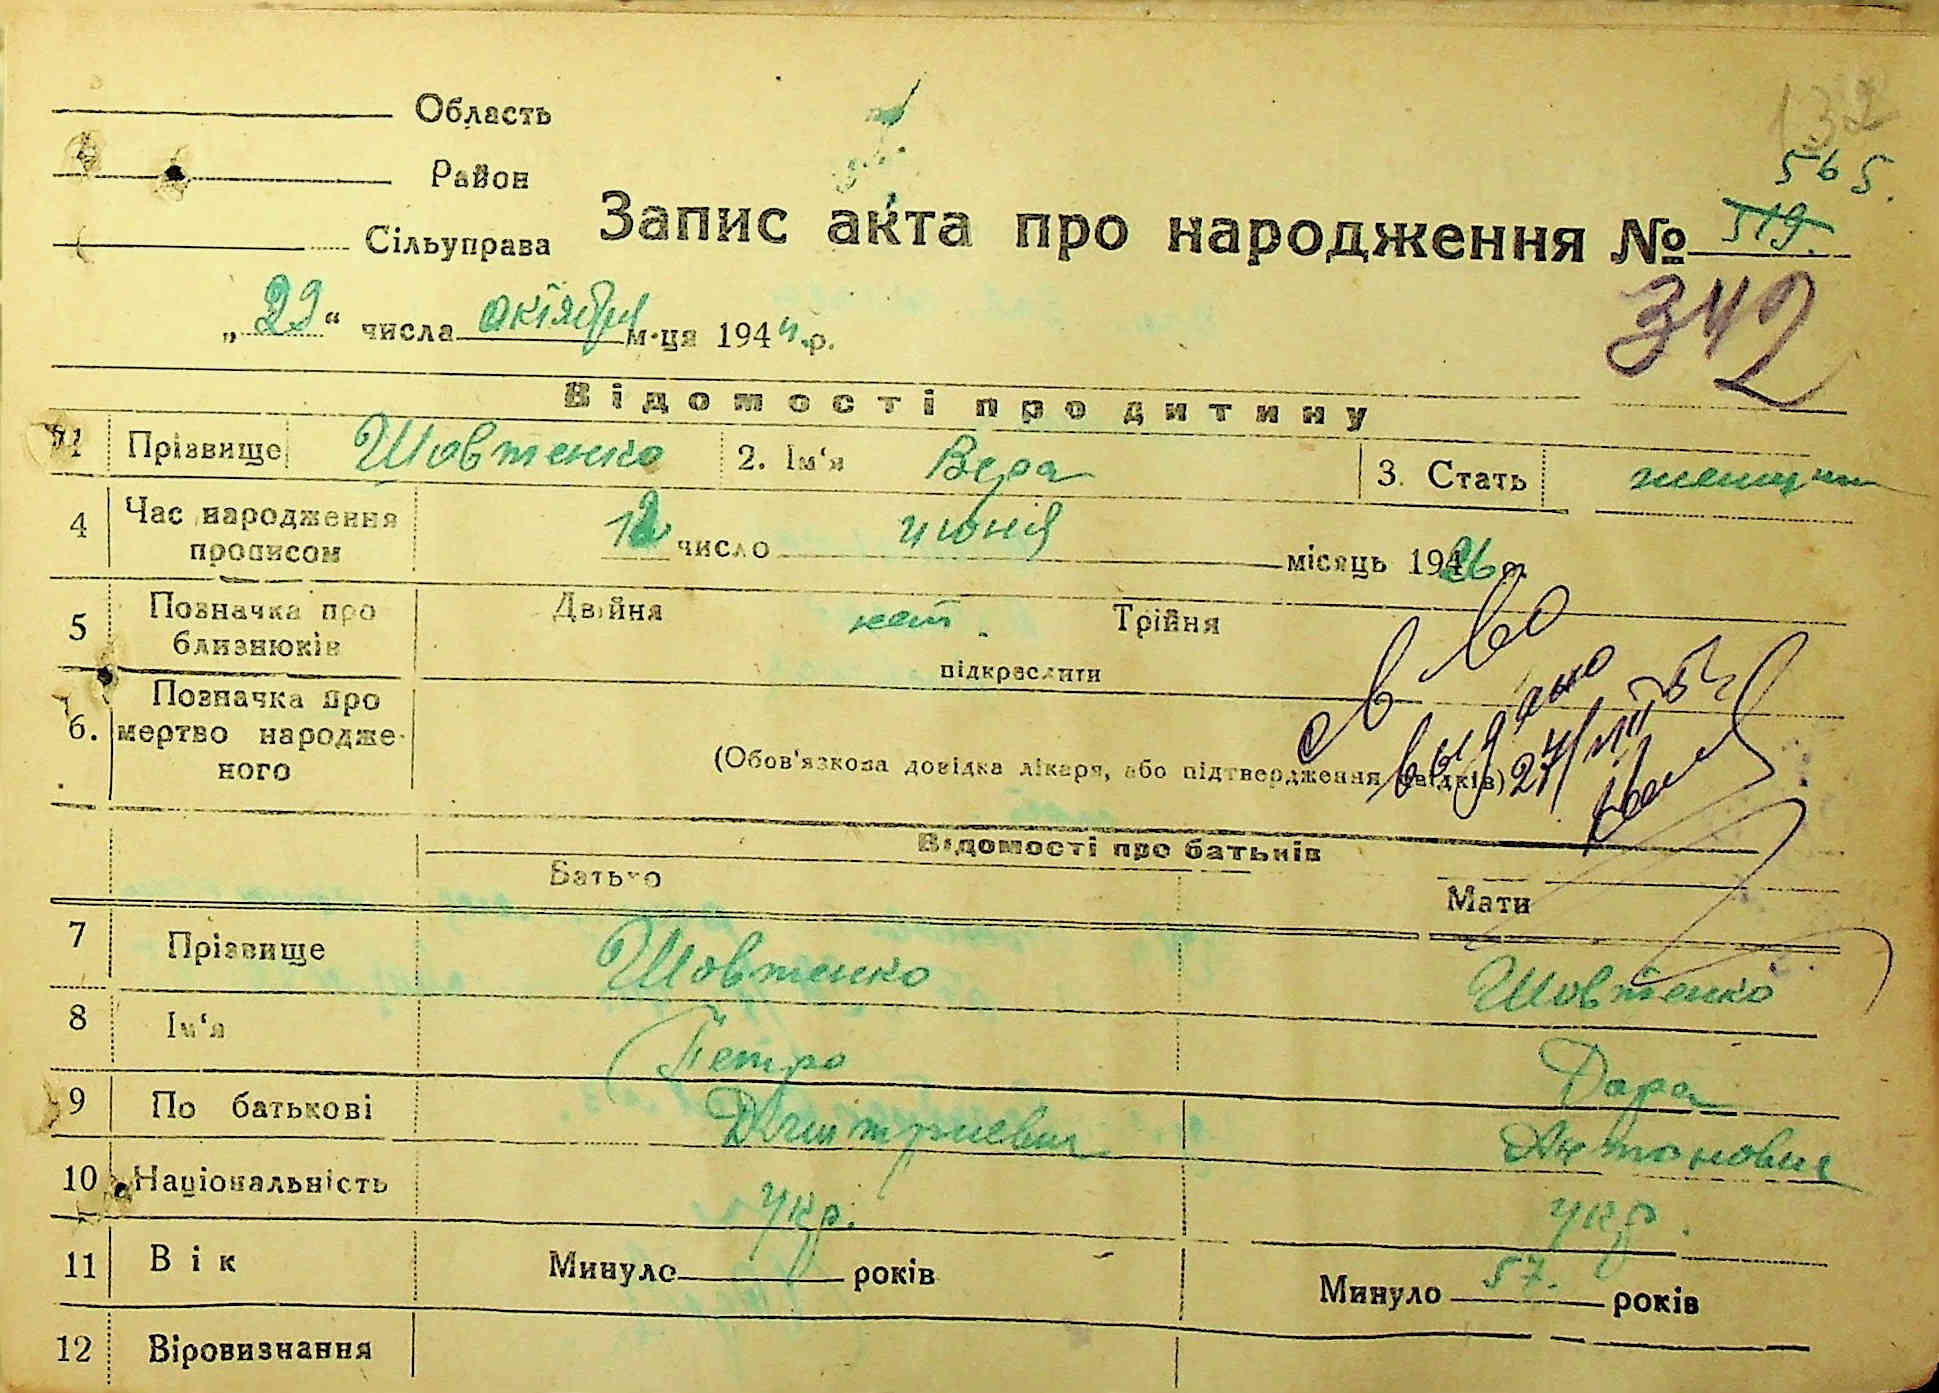 132
Область
565.
Район
Сільуправа
Запис акта про народження № 519.
342
„29“ числа октября м-ця 1944.р.
Відомості про дитину
1 Прізвище Шовтенко 2. Ім‘я Вера 3. Стать
4 Час народження
прописом
12 число июня місяць 1926 р.
5 Позначка про
близнюків
Двійня нет Трійня
підкреслити
6. Позначка про
мертво народже-
ного
(Обов'язкова довідка лікаря, або підтвердження свідків)
св во
выдано
27/VIII 52
Відомості про батьків
Батько Мати
7 Прізвище Шовтенко Шовтенко
8 Ім‘я Петро Дара
9 По батькові Дмитриевич Антоновна
10 Національність укр. укр.
11 Вік Минуло роківМинуло 57. років
12 Віровизнання